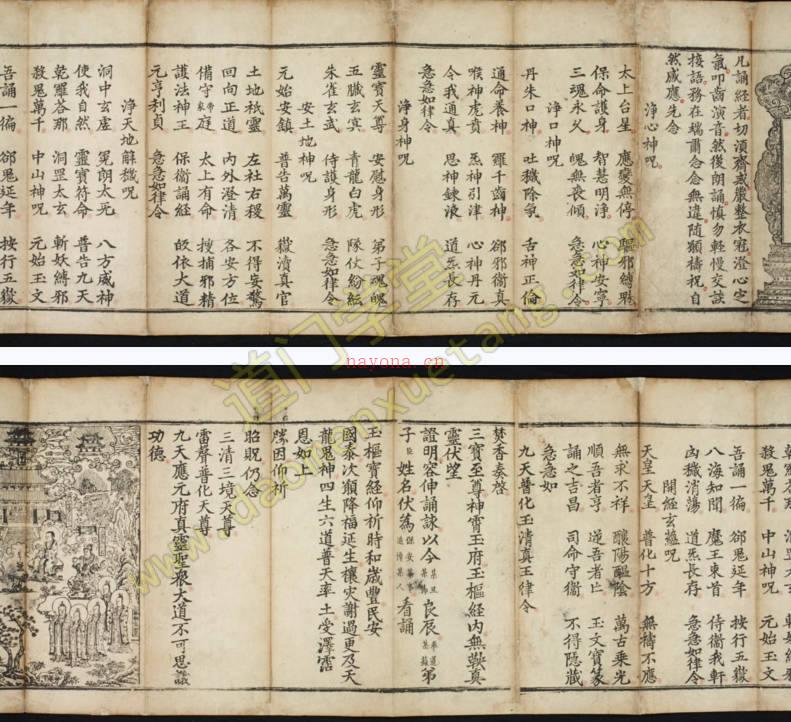 凡誦經者切須齋戒嚴整衣冠澄心定
氣叩齒演音然後朗誦慎勿輕慢交談
接語務在端肅念念無違隨願禱祝自
然感應先念
淨心神呪
太上台星　應變無停　驅邪縛魅
保命護身　智慧明淨　心神安寧
三魂永久　魄無喪傾　急急如律令
淨口神呪
丹朱口神　吐穢除氛　舌神正倫
通命養神　羅千齒神　卻邪衛真
喉神虎賁　炁神引津　心神丹元
令我通真　思神鍊液　道炁長存
急急如律令
淨身神呪
靈寶天尊　安慰身形　弟子魂魄
五臟玄冥　青龍白虎　隊仗紛紜
朱雀玄武　侍護身形　急急如律令
安土地神呪
元始安鎮　普告萬靈　嶽瀆真官
土地祇靈　左社右稷　不得妄驚
回向正道　內外澄清　各安方位
備守家庭　太上有命　搜捕邪精
護法神王　保衛誦經　皈依大道
元亨利貞　急急如律令
淨天地解穢呪
洞中玄虛　晃朗太元　八方威神
使我自然　靈寶符命　普告九天
乾羅荅那　洞罡太玄　斬妖縛邪
殺鬼萬千　中山神呪　元始玉文
吾誦一徧　卻鬼延年　按行五嶽
殺鬼萬千　中山神呪　元始玉文
吾誦一徧　卻鬼延年　按行五嶽
八海知聞　魔王束首　侍衛我軒
凶穢消蕩　道炁長存　急急如律令
開經玄蘊呪
天皇天皇　普化十方　無禱不應
無求不祥　驅陽　陰　萬古乘光
順吾者亨　逆吾者亡　玉文寶篆
誦之吉昌　司命守衛　不得隱藏
急急如
九天普化玉清真王律令
焚香奏啓
三寶至尊神霄玉府玉樞經內無鞅真
靈伏望
證明容伸誦諫以今　良辰　弟
子　姓名伏為　看誦
玉樞寶經仰祈時和歲豐民安
國泰次願降福延生禳災謝過更及天
龍鬼神四生六道普天率土受澤霑
恩如上
勝因仰祈
昭貺仍念
三清三境天尊
雷聲普化天尊
九天應元府真靈聖眾大道不可思議
功德
道门学堂
www.daomenxuetang.com
nayona.cn